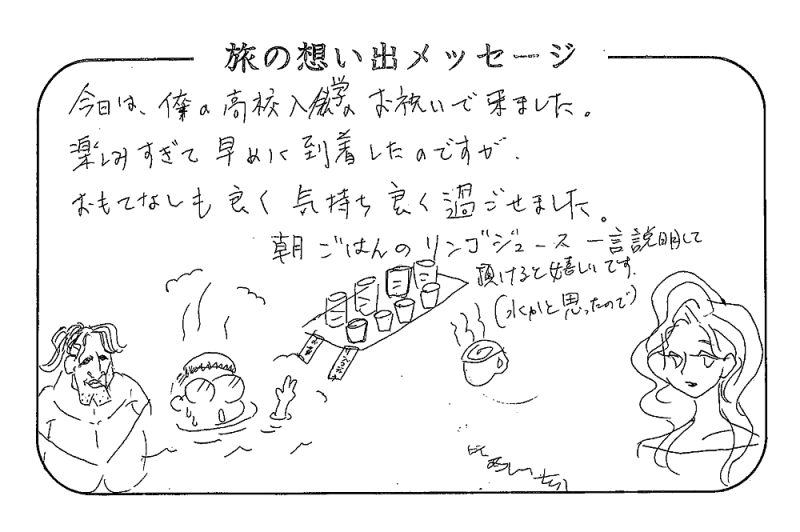 旅の想い出メッセージ
今日は、僕の高校入学のお祝いで来ました。
楽しみすぎて早めに到着したのですが、
おもてなしも良く気持ち良く過ごせました。
朝ごはんのリンゴジュース一言説明して
頂けると嬉しいです。
(水かと思ったので)